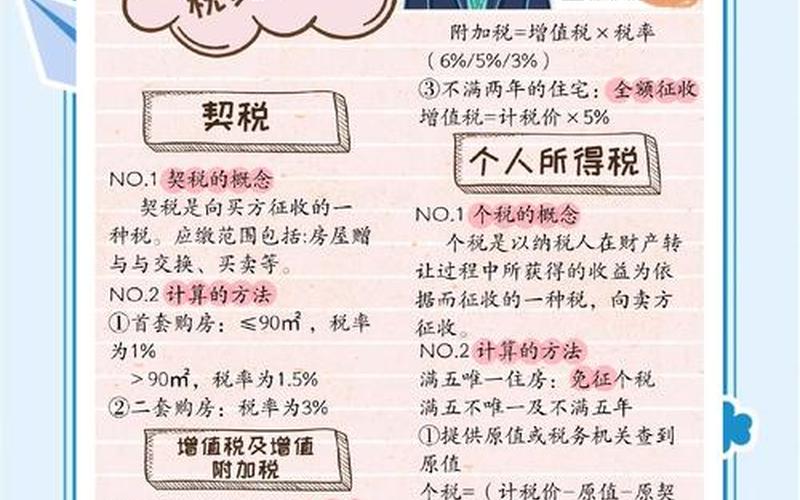 契税
NO.1 契税的概念
契税是向买方征收的一
种税。应缴范围包括:房屋赠
与与交换、买卖等。
NO.2 计算的方法
①首套购房：≤90㎡，税率
为1%
>90㎡，税率为1.5%
②二套购房：税率为3%
增值税及增值
附加税
附加税=增值税×税率
（6%/5%/3%）
③不满两年的住宅：全额征收
增值税=计税价×5%
个人所得税
NO.1 个税的概念
个税是以纳税人在财产转
让过程中所获得的收益为依
据而征收的一种税，向卖方
征收。
NO.2 计算的方法
满五唯一住房：免征个税
满五不唯一及不满五年
①提供原值或税务机关查到
原值
个税=（计税价-原值-原契